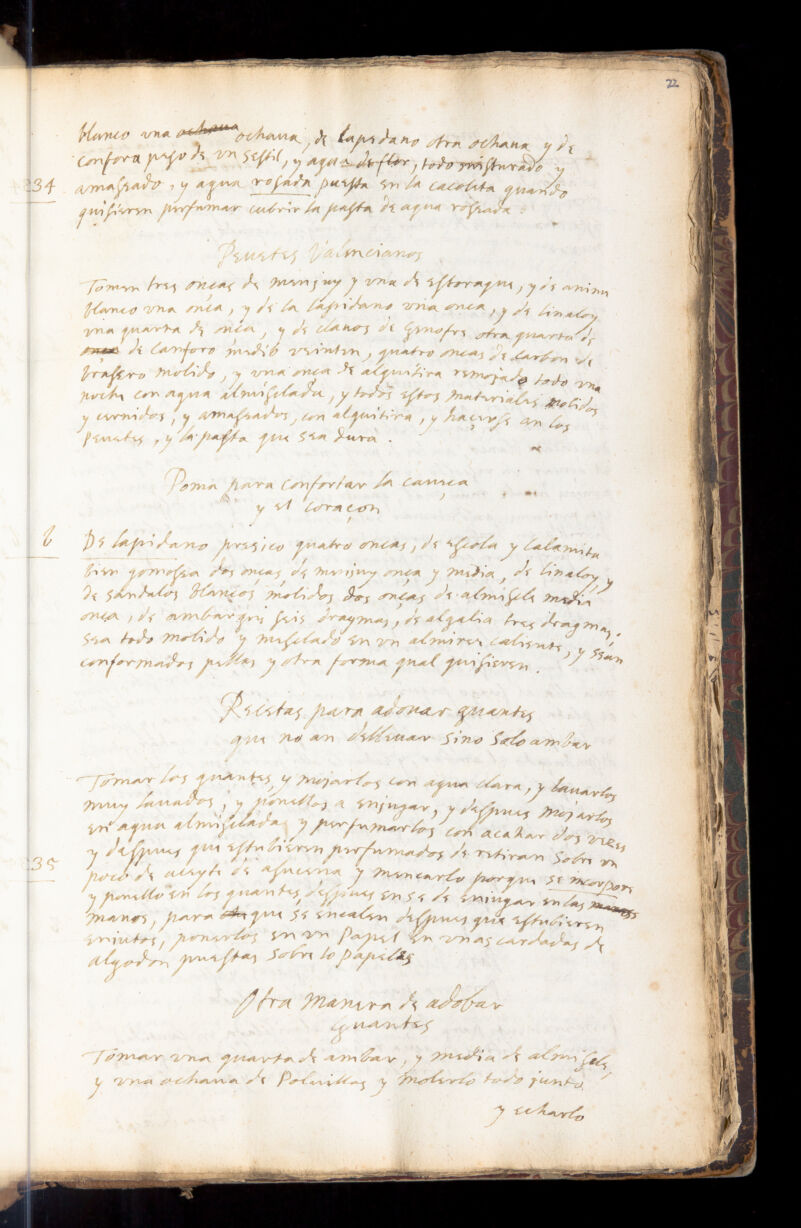 22
blanco una ochaua ochaua, de lapedano otra ochaua y de
confora peso de un sestil, y agua de flor, todo misturado y
234
amassado, y agua rosada puesta en la cacoleta quando
quisieren perfumar cubrir la pasta de agua roseada.
Peuetes Valencianos
Tomen tres oncas de menjuy y una de estoraque, y de anime
blanco una onca, y de la lapidano una onca, y de linaloy
una quarta de onca, y de clauos de genofre otra quarta de
onca de canforo medio veinten, quatro oncas de carbon de
brasero molido, y una onca de alquitira remojado todo una
noche con agua almisclada, y todos estos materiales molidos
y cernidos, y amassados, con alquitira, y haçerse an los
peuetes, y la pasta que sea dura.
Poma para confortar la caueça
y el coraçon
6
De lapidano presico quatro oncas, de escola y calamita
bien gomossa dos onças, de menjuy onça y media, de linaloy, y
de sandalos blancos molidos dos onças de almiscle media
onça, de ambargris seis dragmas, de algalia tres dragmas,
sea todo molido y mesclado en un almirez caliente, y sean
conformados pellas y otra forma qual quisieren.
Recetas para adouar guantes
que no an dellleuar sino solo ambar
Tomar los guantes, y mojarlos con agua clara, y lauarlos
muy lauados, y ponellos a enjugar, y despues mojarlos
en agua almisclada y perfumarlos con acahar dos vezes
235
y despues que estubieren perfumados de retiran sobre un
poco de aceyte de assucena y menearlo porque se incorpore
y ponello en los guantes despues en se de enjugar en las manos
manos, para que se encalen despues que estubieren
enjutos, ponerlos en un Papel en unas cardadas de
algodon puestas sobre lo papeles
Otra manera de adobar
guantes
Tomar una quarta de ambar, y media de almiscle,
y una ochaua de Poluillos y molerlo todo junto
y echarlo